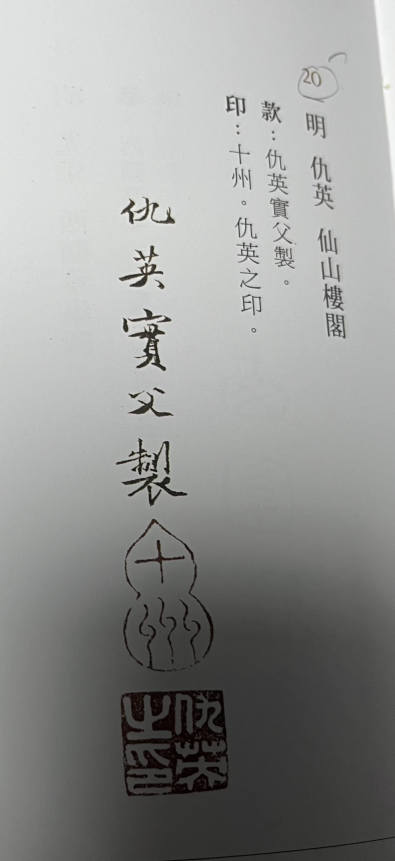 20
明 仇英 仙山樓閣
款：仇英實父製。
印：十州。仇英之印。
仇英實父製
十州
仇英之印